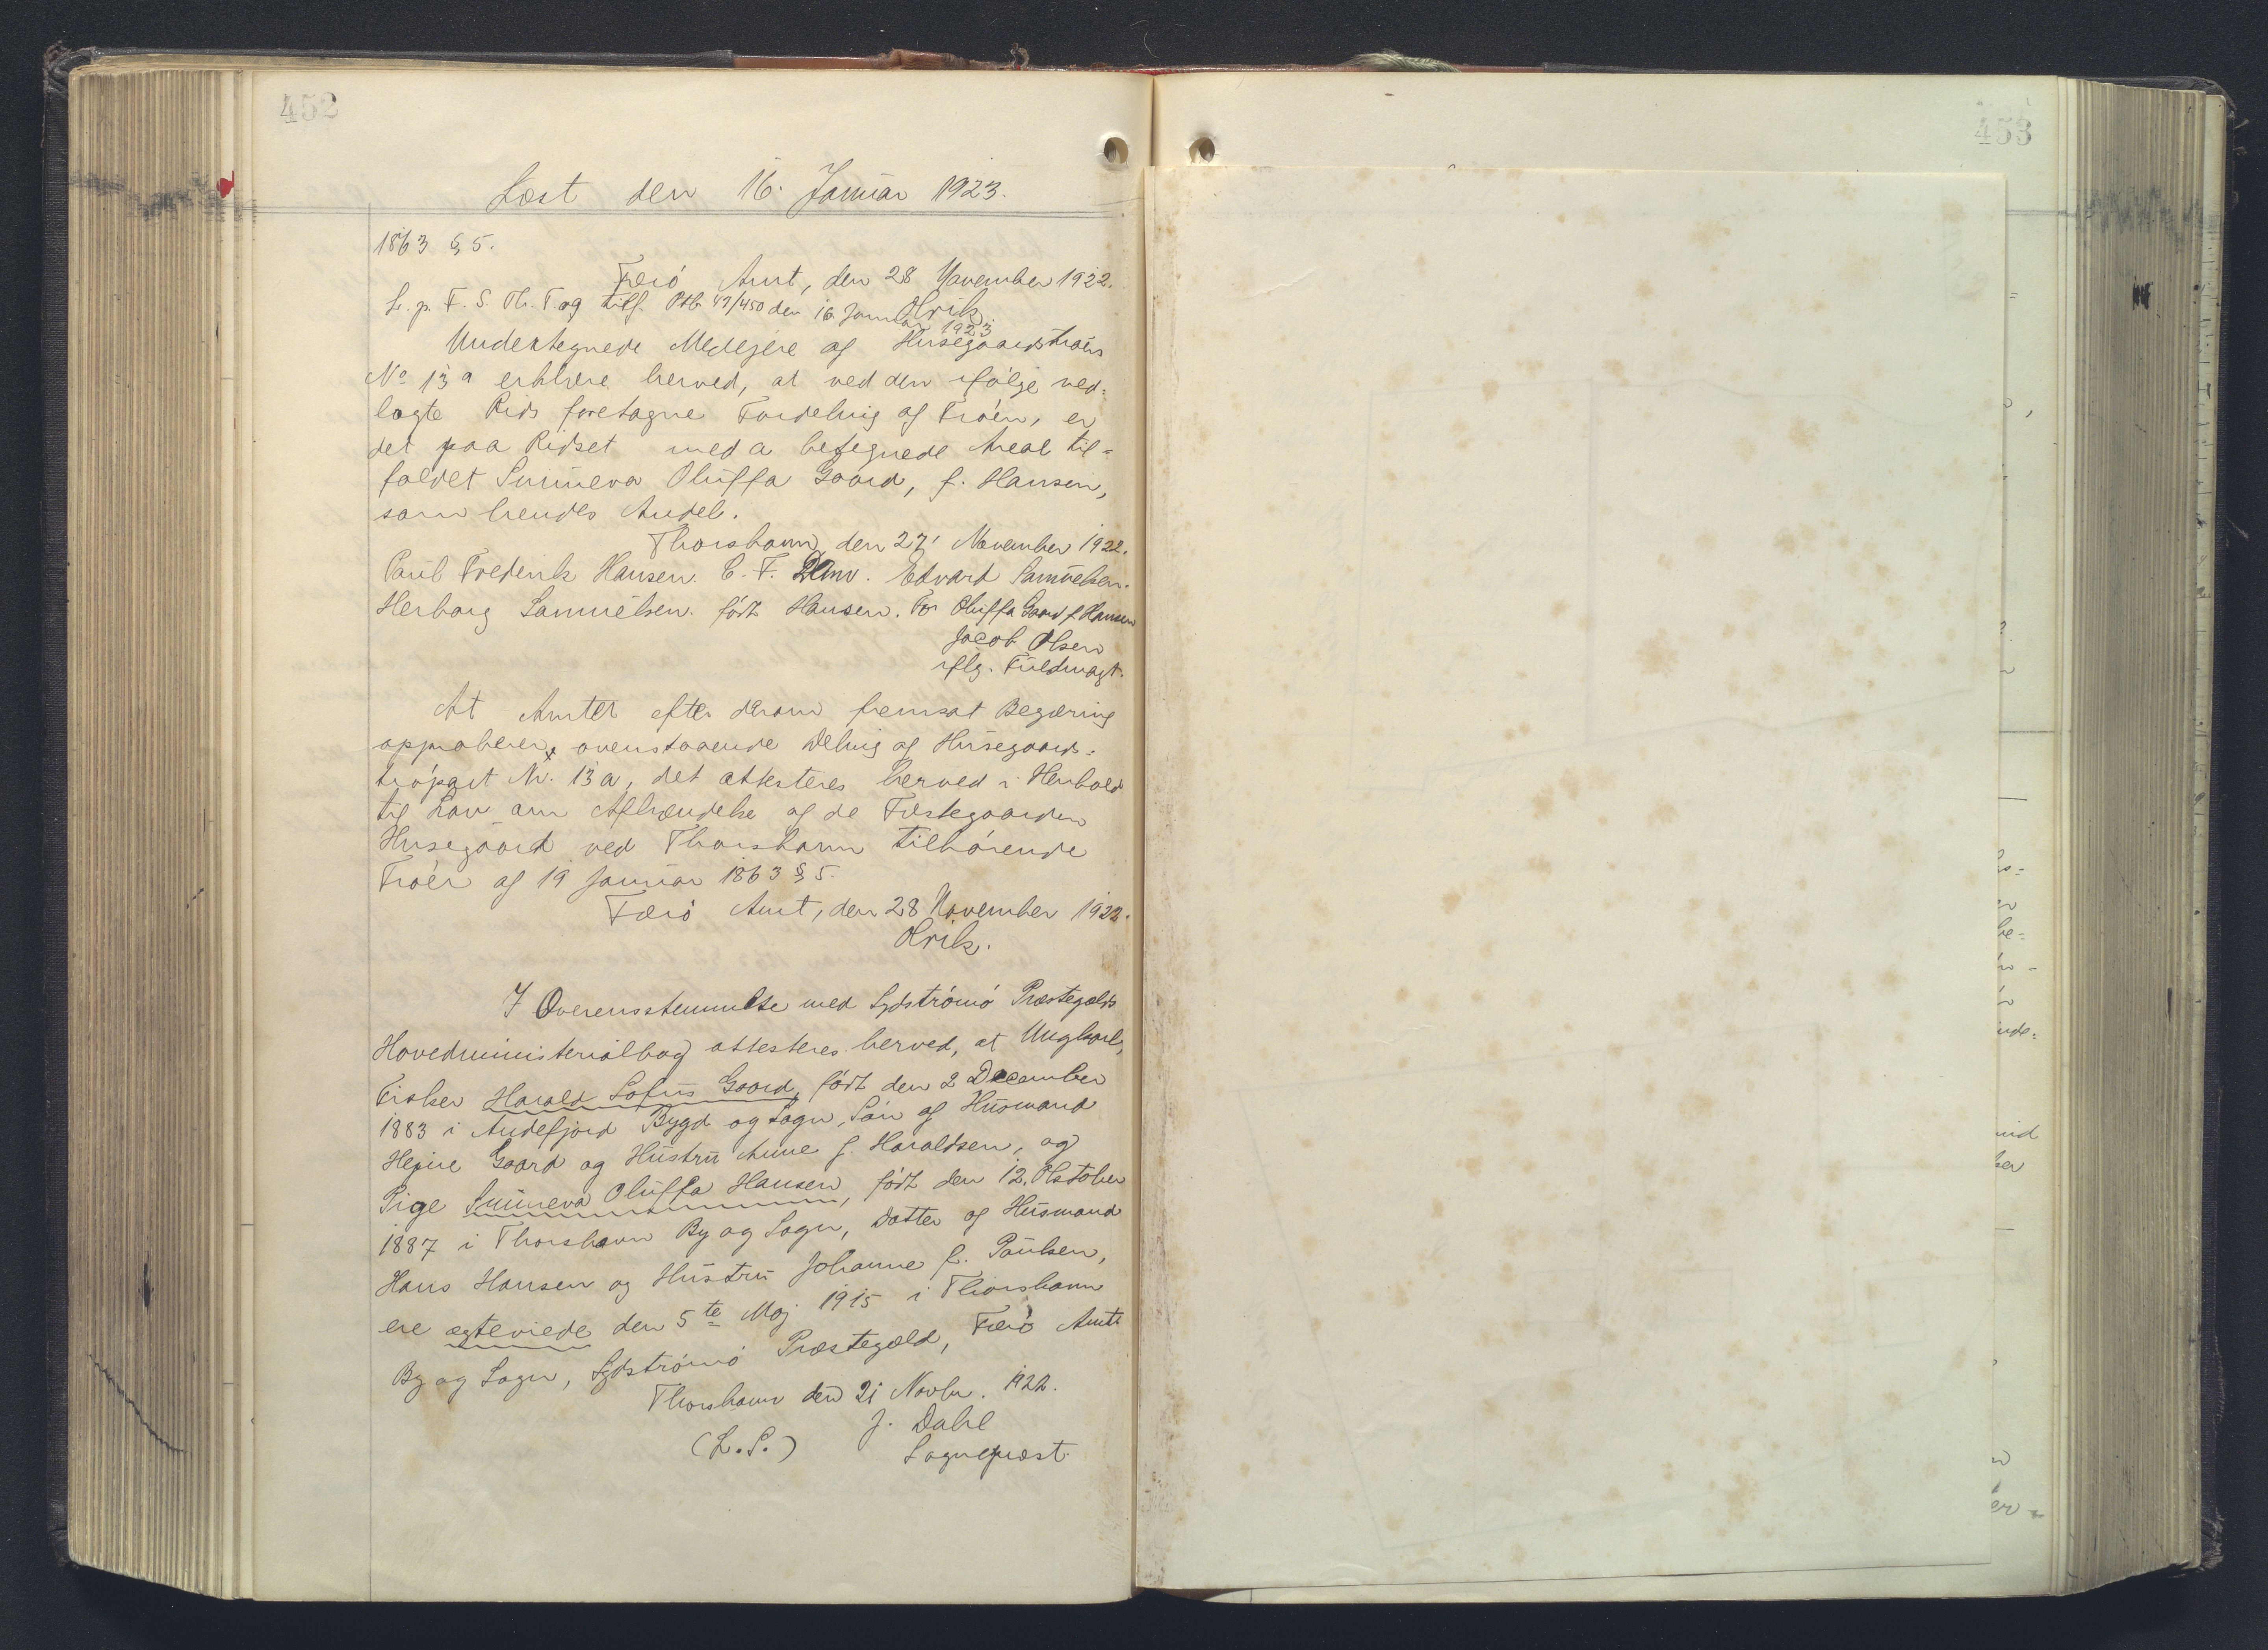 452
453
Læst den 16. Januar 1923.
1863 § 5.
Færø Amt, den 28 November 1922.
Olrik
L. p. F. S. Th. T. og tilf. Ptb. 47/450 den 16 Januar 1923
Undertegnede Medejere af Husegaardstrøen
No 13 a erklære herved, at ved den ifølge ved-
lagte Rids foretagne Fordeling af Trøen, er
det paa Ridset med a betegnede Areal til-
faldet Sunneva Oluffa Gaard, f. Hansen,
som hendes Andel.
Thorshavn, den 27' November 1922.
Paul Frederik Hansen. C. F. Edvard Samuelsen.
Herborg Samuelsen født Hansen. For Oluffa Gaard f. Hansen
Jacob Olsen
iflg. Fuldmagt.
At Amtet efter derom fremsat Begæring
approberer ovenstaaende Deling af Husegaards-
trøpart Nr. 13 a, det attesteres herved i Henhold
til Lov om Afhændelse af de Fæstegaarden
Husegaard ved Thorshavn tilhørende
Trøer af 19 Januar 1863 § 5.
Færø Amt, den 28 November 1922.
Olrik.
I Overensstemmelse med Sydstrømø Præstegælds
Hovedministerialbog attesteres herved, at Ungkarl,
Fisker Harald Sofus Gaard, født den 2 December
1883 i Andefjord Bygd og Sogn, Søn af Husmand
Hejne Gaard og Hustru Anne f. Haraldsen, og
Pige Sunneva Oluffa Hansen, født den 12. Oktober
1887 i Thorshavn By og Sogn, Datter af Husmand
Hans Hansen og Hustru Johanne f. Poulsen,
ere ægteviede den 5te Maj 1915 i Thorshavn
By og Sogn, Sydstrømø Præstegæld, Færø Amt.
Thorshavn den 21 Novbr. 1922.
J. Dahl
(L.S.) Sognepræst.